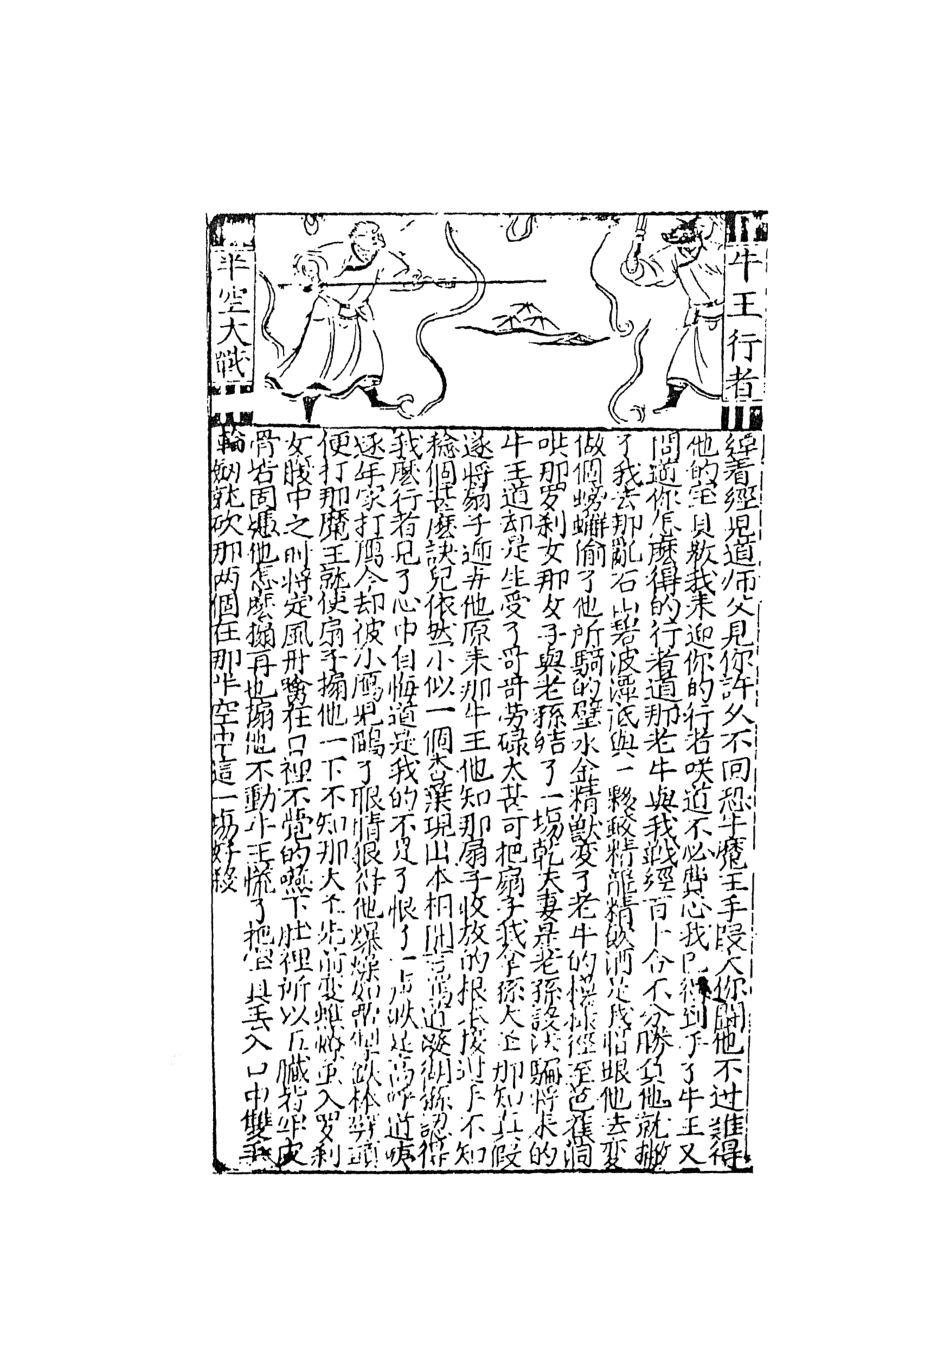 牛王行者
半空大戰
經着經見道師父見你許久不回恐牛魔王手段大你鬪他不过難得
他的宝貝教我來迎你的行者咲道不必費心我已得到手了牛王又
問道你怎麽得的行者道那老牛與我戰經百十合不分勝負他就撇
了我去那亂石山碧波潭底與一夥蛟精龍精飲酒是我怕跟他去变
做個螃蠏偷了他所騎的璧水金精獸变了老牛的模樣徑至芭蕉洞
哄那罗刹女那女子與老孫結了一塲乾夫妻是老孫設法騙將來的
牛王道却是生受了哥哥劳碌太甚可把扇子我拿孫大圣那知真假
遂將扇子逓与他原来那牛王他知那扇子收放的根本接过手不知
稔個甚麽訣兒依然小似一個杏葉現出本相開言罵道潑猢猻認得
我麽行者見了心中自悔道是我的不是了恨了一声跌足高呼道咦
逐年家打鴈今却彼小鴈児鵮了眼睛狠得他爆燥如雷掣鉄棒劈頭
便打那魔王就使扇子搧他一下不知那大圣先前变蟭蟟虫入罗刹
女腹中之时將定風丹噙在口裡不覚的嚥下肚裡所以五臓皆牢皮
骨皆固凴他怎麽搧再也搧他不動牛王慌了把宝貝丢入口中雙手
輪劒就砍那两個在那半空中這一塲好殺